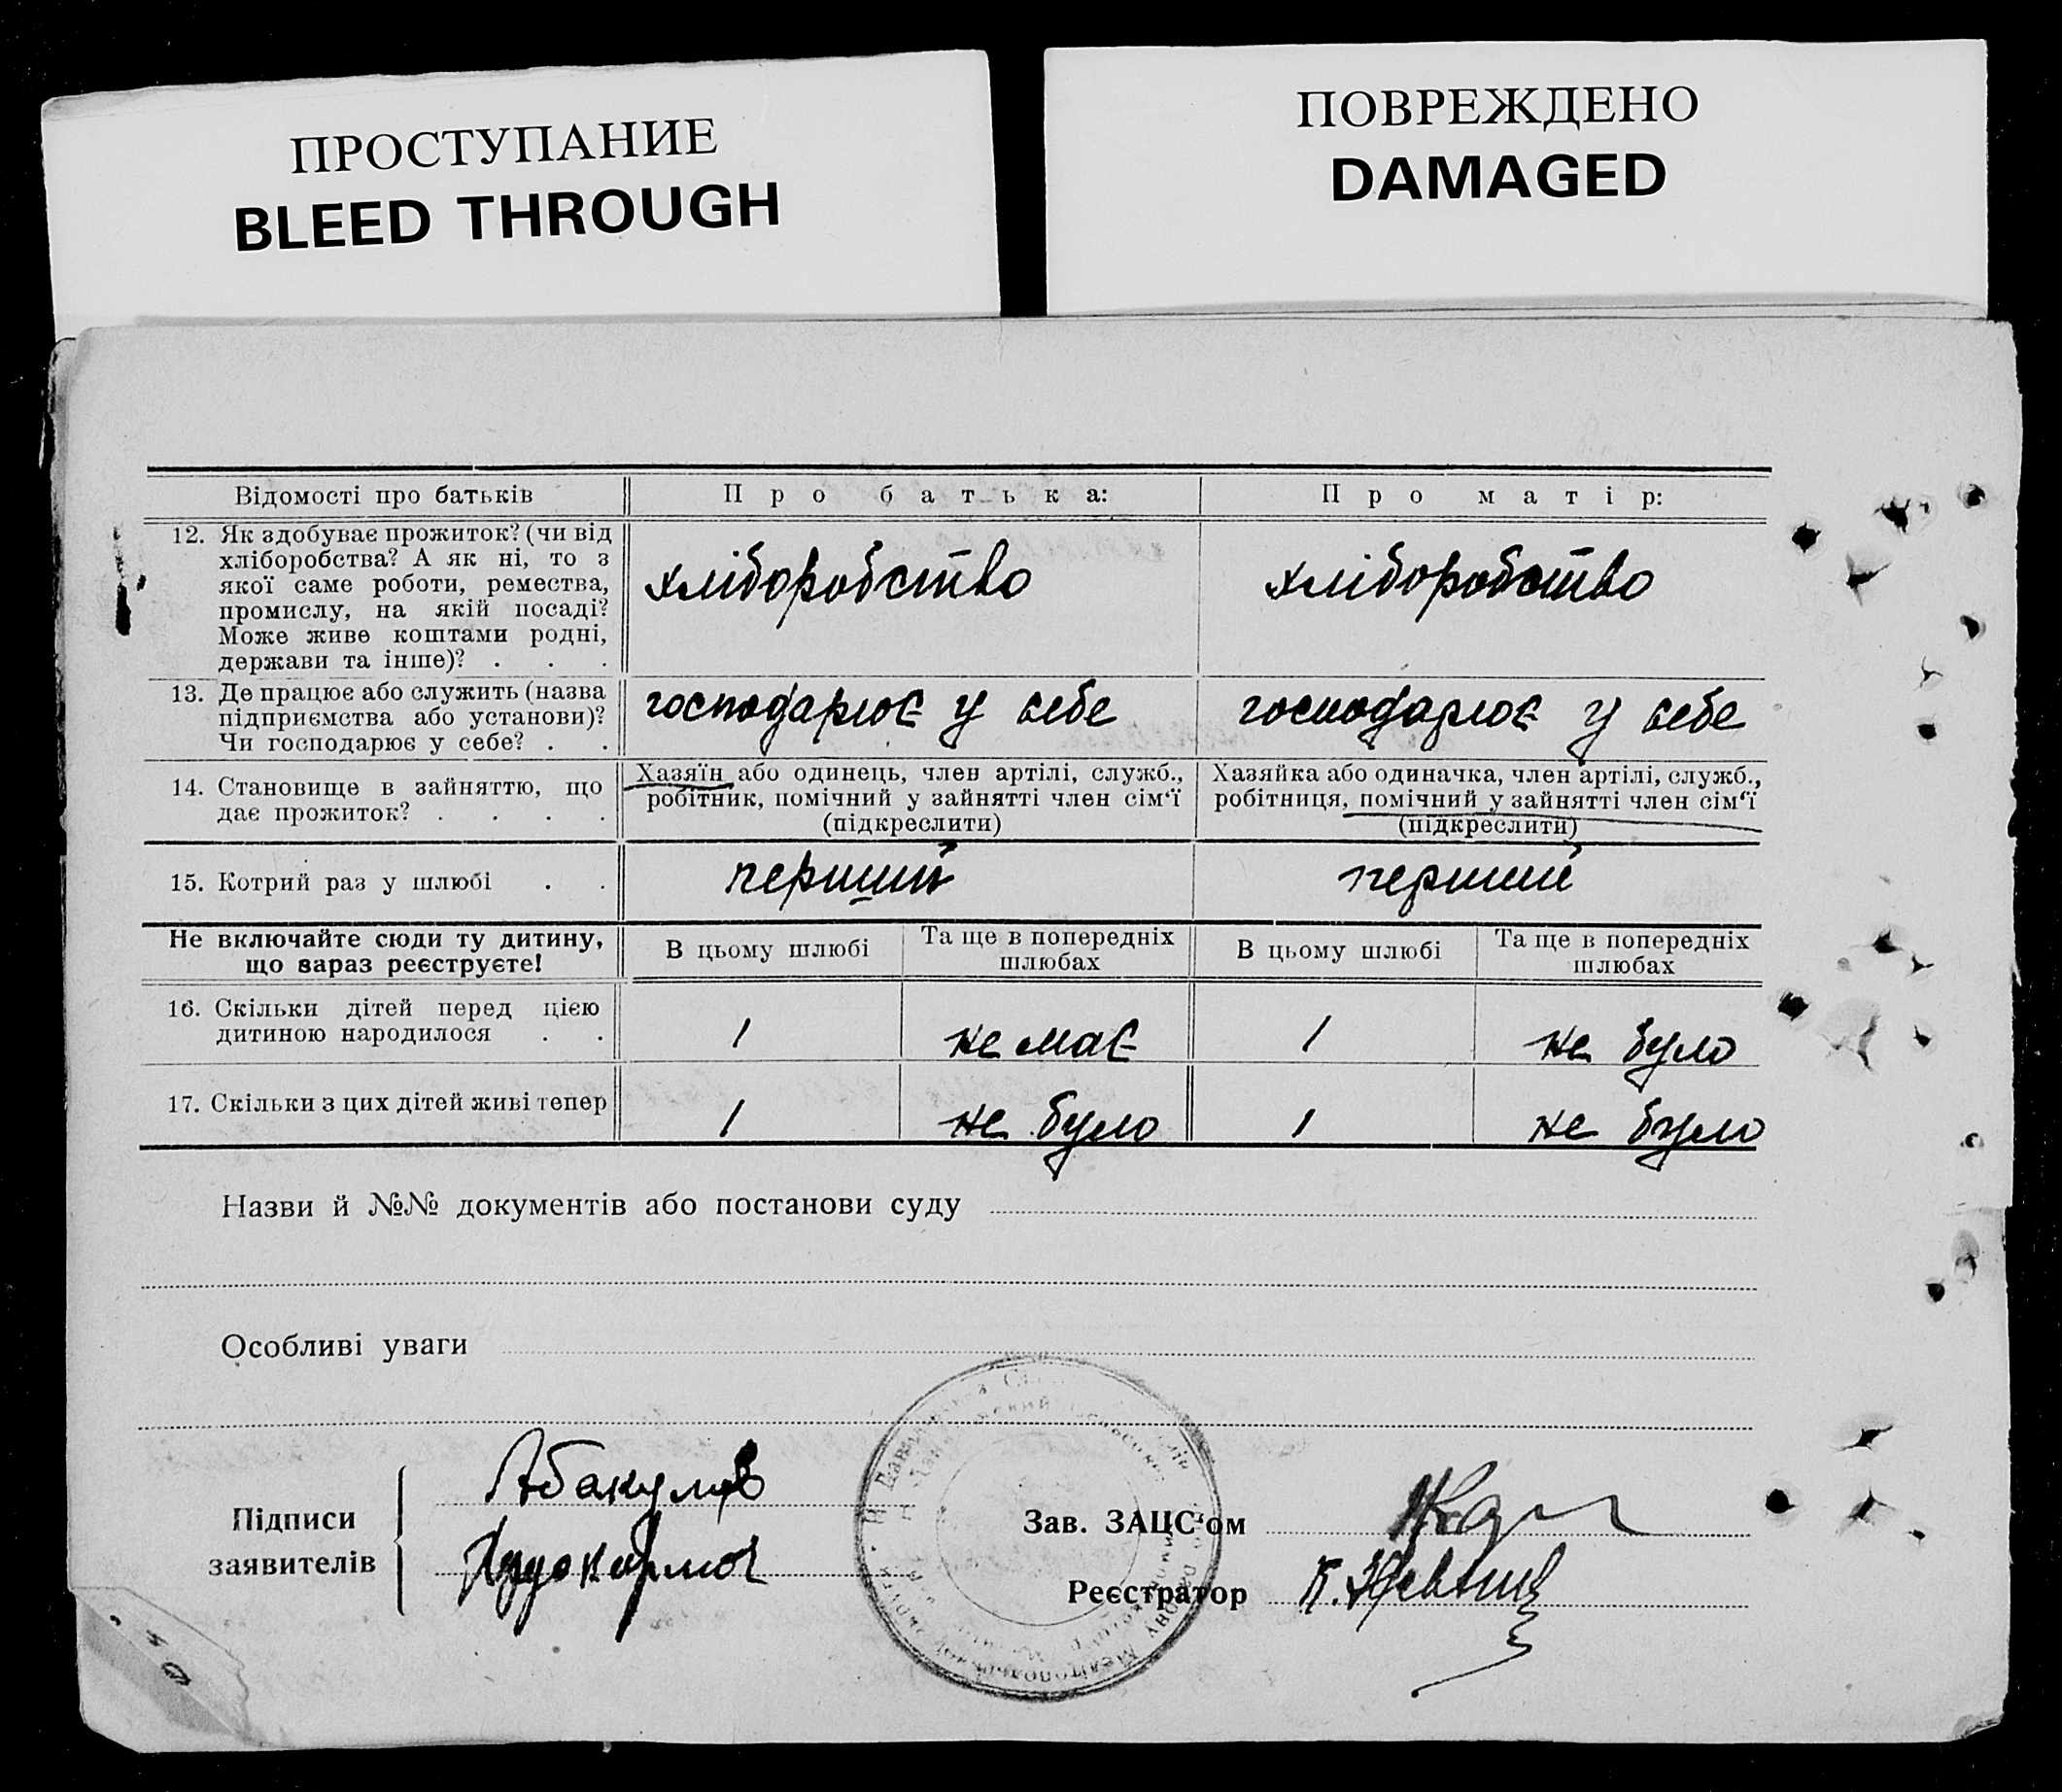 ПРОСТУПАНИЕ
BLEED THROUGH
ПОВРЕЖДЕНО
DAMAGED
Відомості про батьків
Про батька:
Про матір:
12. Як здобуває прожиток? (чи від
хліборобства? А як ні, то з
якої саме роботи, ремества,
промислу, на якій посаді?
Може живе коштами родні,
держави та інше)? . . .
хліборобство
хліборобство
13. Де працює або служить (назва
підприємства або установи)?
Чи господарює у себе? . .
господарює у себе
господарює у себе
14. Становище в зайняттю, що
дає прожиток? . . . .
Хазяїн або одинець, член артілі, служб.,
робітник, помічний у зайнятті член сім‘ї
(підкреслити)
Хазяйка або одиначка, член артілі, служб.,
робітниця, помічний у зайнятті член сім‘ї
(підкреслити)
15. Котрий раз у шлюбі . .
перший
перший
Не включайте сюди ту дитину,
що зараз реєструєте!
В цьому шлюбі
Та ще в попередніх
шлюбах
В цьому шлюбі
Та ще в попередніх
шлюбах
16. Скільки дітей перед цією
дитиною народилося . .
1
не має
1
не було
17. Скільки з цих дітей живі тепер
1
не було
1
не було
Назви й №№ документів або постанови суду
Особливі уваги
Підписи
заявителів
Абакумов
Худокормов
Зав. ЗАЦС‘ом
Реєстратор
Мелітопольської округи